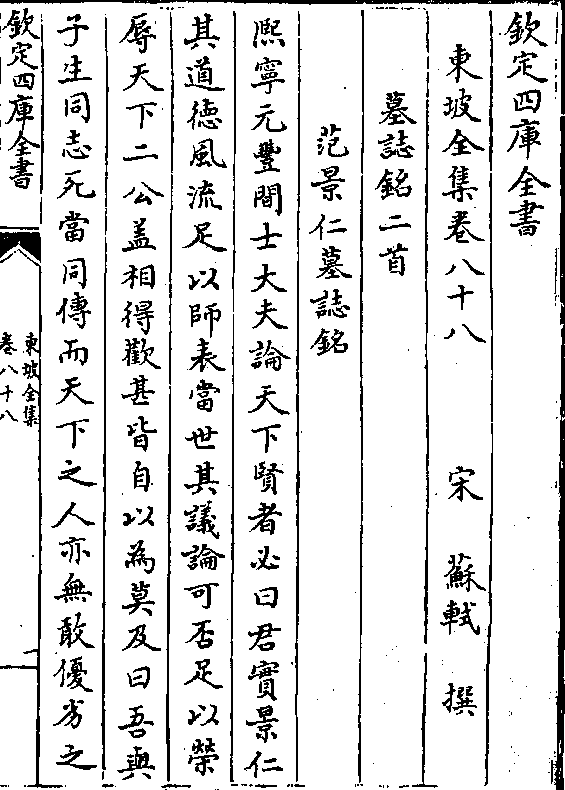 欽定四庫全書
東坡全集卷八十八
宋 蘇軾 撰
墓誌銘二首
范景仁墓誌銘
熈寧元豐間士大夫論天下賢者必曰君實景仁
其道德風流足以師表當世其議論可否足以榮
辱天下二公盖相得歡甚皆自以為莫及曰吾與
子生同志死當同傳而天下之人亦無敢優劣之
欽定四庫全書
東坡全集
卷八十八
一